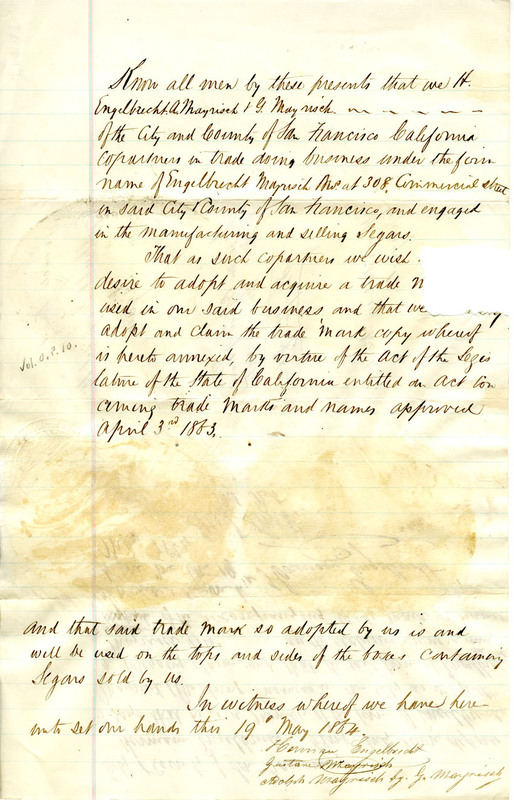 Know all men by these presents that we H.
Engelbrecht, A. Mayrisch & G. Mayrisch
of the City and County of San Francisco California
copartners in trade doing business under the firm
name of Engelbrecht Mayrisch Bros at 308, Commercial street
in said City & County of San Francisco, and engaged
in the manufacturing and selling Segars.
That as such copartners we wish
desire to adopt and acquire a trade
used in our said business and that we
adopt and claim the trade mark copy whereof
is hereto annexed, by virtue of the Act of the Legis
lature of the State of California entitled an Act con
cerning trade marks and names approved
April 3rd 1863.
Vol. 0. P. 10.
and that said trade mark so adopted by us is and
will be used on the tops and sides of the boxes containing
Segars sold by us.
In witness whereof we have here
unto set our hands this 19 May 1864.
Herman Engelbrecht
Gustave Mayrisch
Adolph Mayrisch by G. Mayrisch